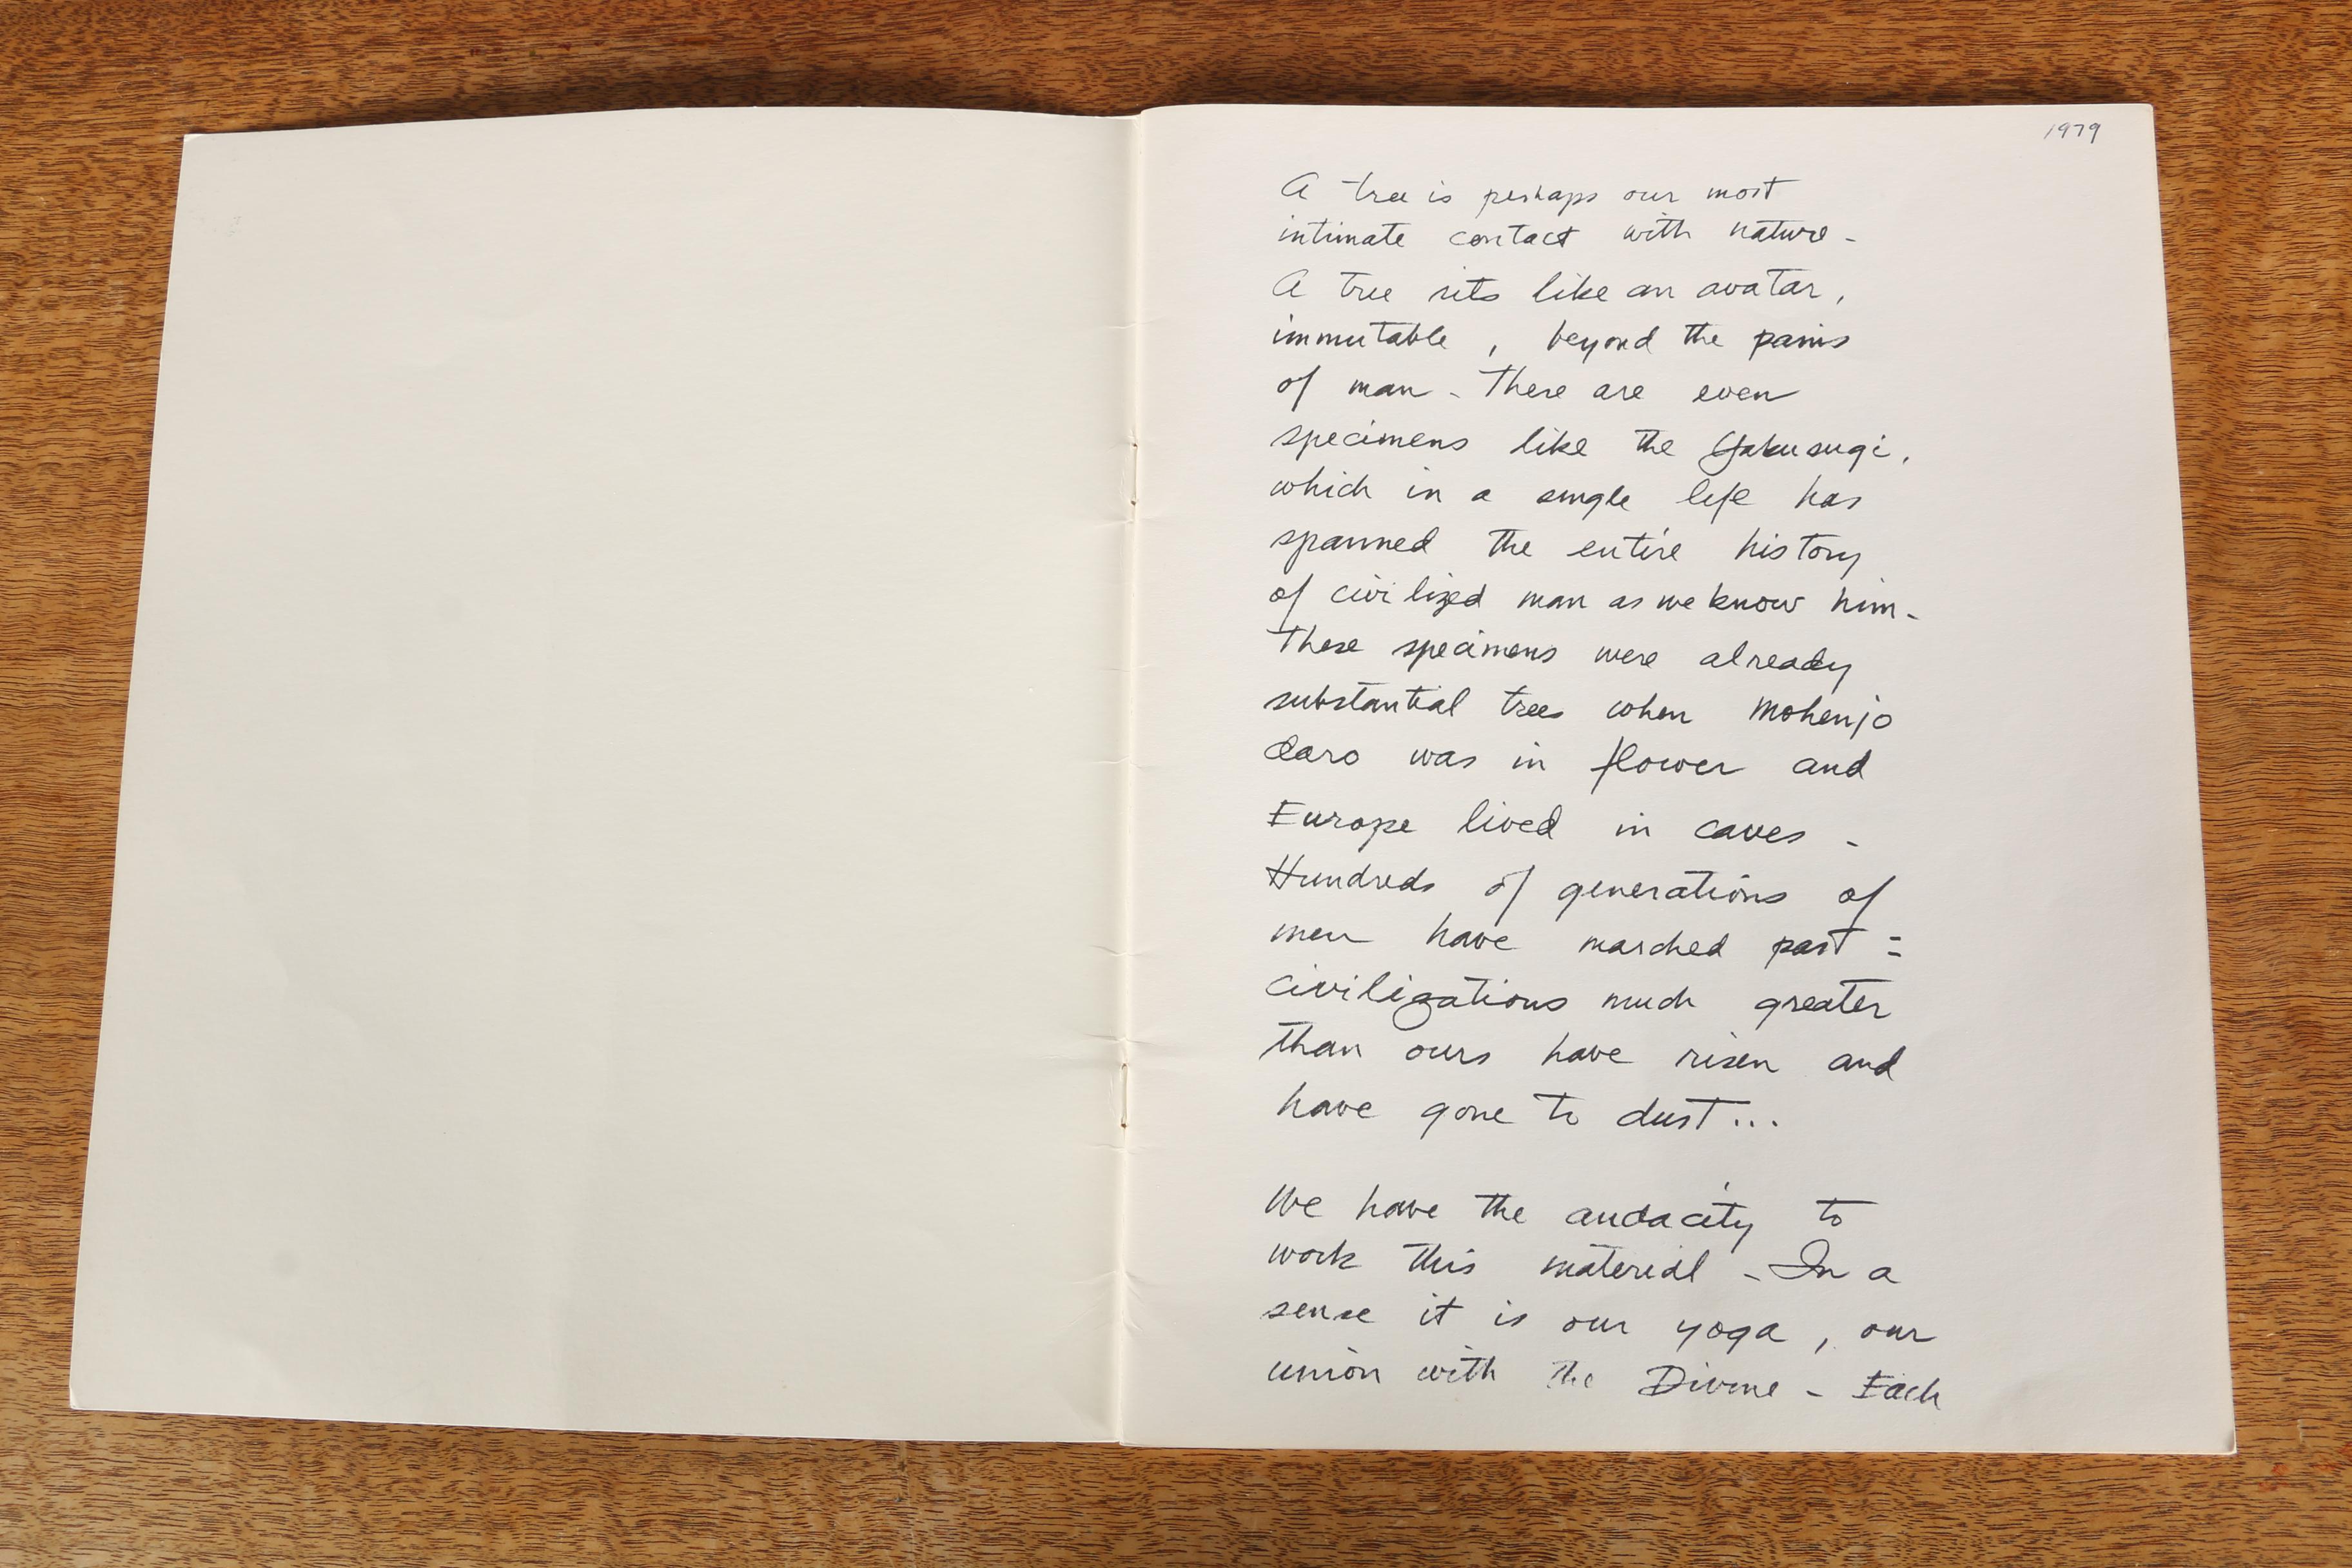 1979
A tree is perhaps our most
intimate contact with nature -
A tree sits like an avatar,
immutable, beyond the pains
of man - There are even
specimens like the Yakusugi,
which in a single life has
spanned the entire history
of civilized man as we know him -
These specimens were already
substantial trees when Mohenjo
daro was in flower and
Europe lived in caves -
Hundreds of generations of
men have marched past =
civilizations much greater
than ours have risen and
have gone to dust...
We have the audacity to
work this material - In a
sense it is our yoga, our
union with the Divine - Each